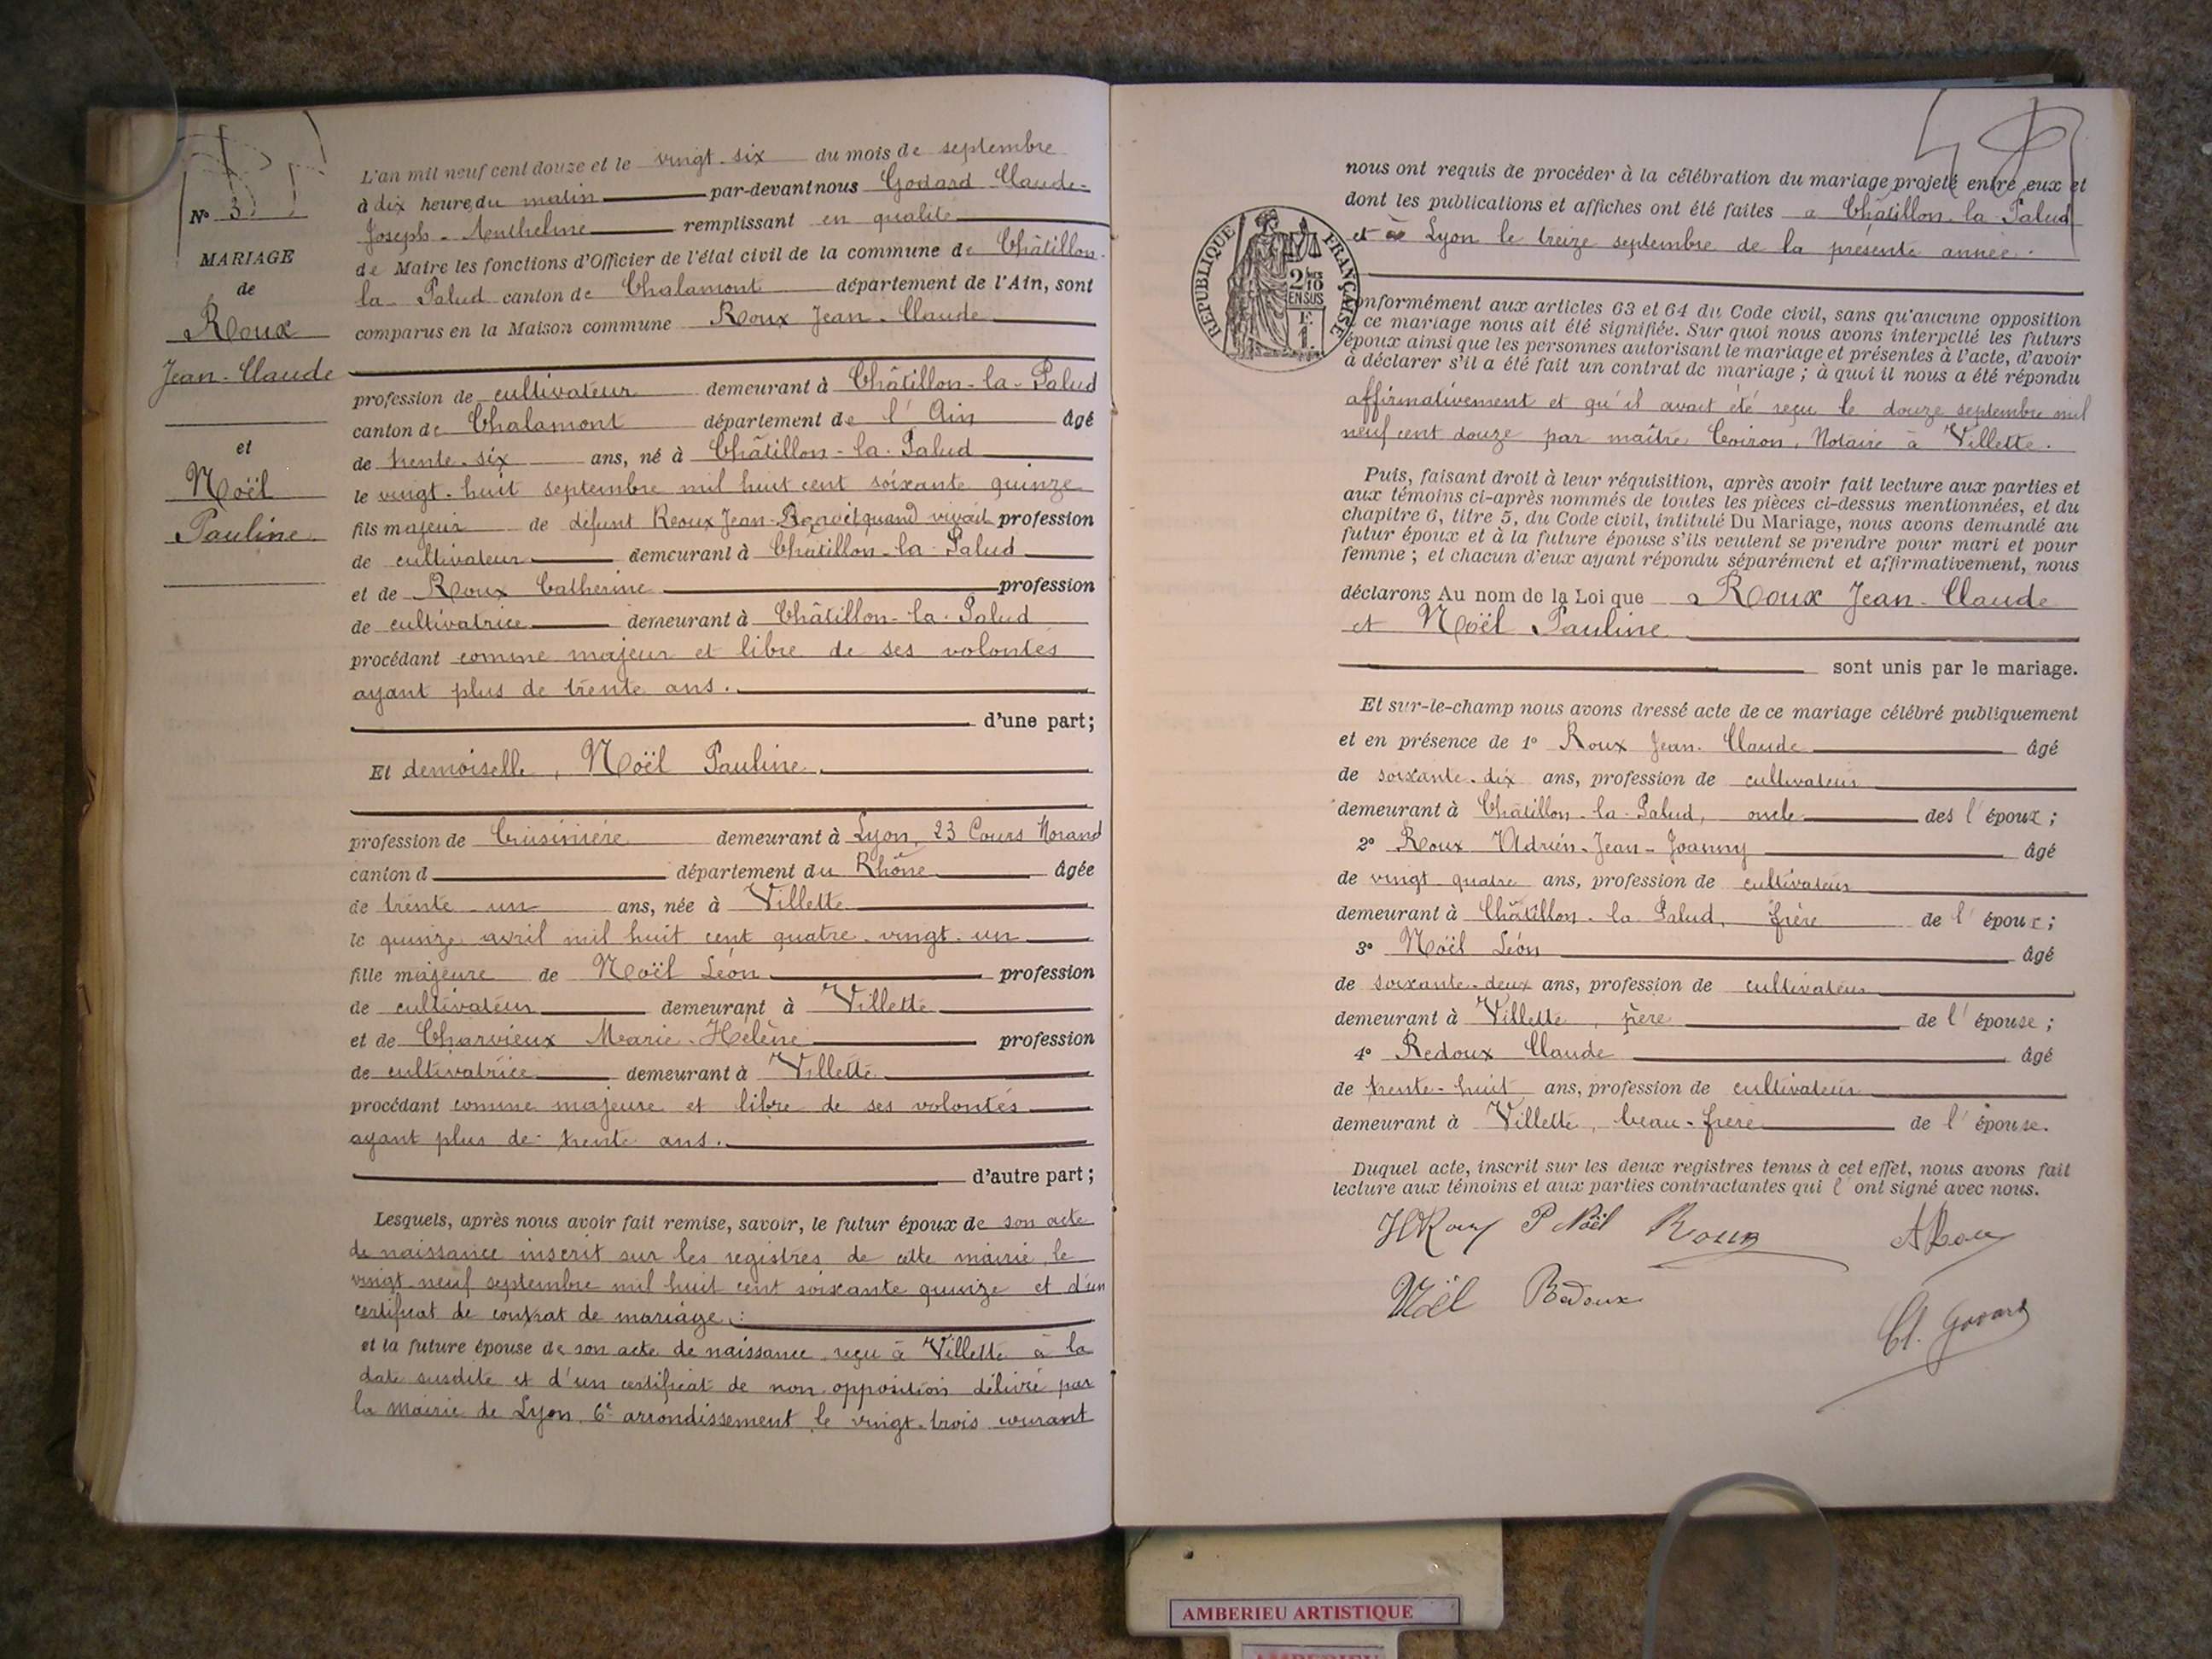 N° 3
MARIAGE
de
Roux
Jean-Claude
et
Noël
Pauline.
L'an mil neuf cent douze et le vingt-six du mois de septembre
à dix heure du matin par-devant nous Godard Claude-
Joseph-Anthelme remplissant en qualité
de Maire les fonctions d'Officier de l'état civil de la commune de Châtillon-
la-Palud canton de Chalamont département de l'Ain, sont
comparus en la Maison commune Roux Jean-Claude
profession de cultivateur demeurant à Châtillon-la-Palud
canton de Chalamont département de l'Ain âgé
de trente-six ans, né à Châtillon-la-Palud
le vingt-huit septembre mil huit cent soixante quinze
fils majeur de défunt Roux Jean- quand vivait profession
de cultivateur demeurant à Châtillon-la-Palud
et de Roux Catherine profession
de cultivatrice demeurant à Châtillon-la-Palud
procédant comme majeur et libre de ses volontés
ayant plus de trente ans.
d'une part;
Et demoiselle, Noël Pauline.
profession de Cuisinière demeurant à Lyon, 23 Cours Morand
canton d département du Rhône âgée
de trente-un ans, née à Villette
le quinze avril mil huit cent quatre-vingt-un
fille majeure de Noël Léon profession
de cultivateur demeurant à Villette
et de Charvieux Marie-Hélène profession
de cultivatrice demeurant à Villette
procédant comme majeure et libre de ses volontés
ayant plus de trente ans.
d'autre part;
Lesquels, après nous avoir fait remise, savoir, le futur époux de son acte
de naissance inscrit sur les registres de cette mairie, le
vingt-neuf septembre mil huit cent soixante quinze et d'un
certificat de contrat de mariage.
et la future épouse de son acte de naissance reçu à Villette à la
date susdite et d'un certificat de non opposition délivré par
la Mairie de Lyon, 6e arrondissement le vingt-trois courant
nous ont requis de procéder à la célébration du mariage projeté entre eux et
dont les publications et affiches ont été faites à Châtillon-la-Palud
et à Lyon le treize septembre de la présente année.
RÉPUBLIQUE FRANÇAISE
2/10
EN SUS
1 F.
conformément aux articles 63 et 64 du Code civil, sans qu'aucune opposition
à ce mariage nous ait été signifiée. Sur quoi nous avons interpellé les futurs
époux ainsi que les personnes autorisant le mariage et présentes à l'acte, d'avoir
à déclarer s'il a été fait un contrat de mariage; à quoi il nous a été répondu
affirmativement et qu'il avait été reçu le douze septembre mil
neuf cent douze par maître Coiron, Notaire à Villette.
Puis, faisant droit à leur réquisition, après avoir fait lecture aux parties et
aux témoins ci-après nommés de toutes les pièces ci-dessus mentionnées, et du
chapitre 6, titre 5, du Code civil, intitulé Du Mariage, nous avons demandé au
futur époux et à la future épouse s'ils veulent se prendre pour mari et pour
femme; et chacun d'eux ayant répondu séparément et affirmativement, nous
déclarons Au nom de la Loi que Roux Jean-Claude
et Noël Pauline
sont unis par le mariage.
Et sur-le-champ nous avons dressé acte de ce mariage célébré publiquement
et en présence de 1° Roux Jean-Claude âgé
de soixante-dix ans, profession de cultivateur
demeurant à Châtillon-la-Palud, oncle des l'époux;
2° Roux Adrien-Jean-Joanny âgé
de vingt quatre ans, profession de cultivateur
demeurant à Châtillon-la-Palud, frère de l'époux;
3° Noël Léon âgé
de soixante-deux ans, profession de cultivateur
demeurant à Villette, père de l'épouse;
4° Redoux Claude âgé
de trente-huit ans, profession de cultivateur
demeurant à Villette, beau-frère de l'épouse.
Duquel acte, inscrit sur les deux registres tenus à cet effet, nous avons fait
lecture aux témoins et aux parties contractantes qui l'ont signé avec nous.
P Noël Roux A Roux
Noël Redoux
Cl. Godard
AMBERIEU ARTISTIQUE
AMBERIEU